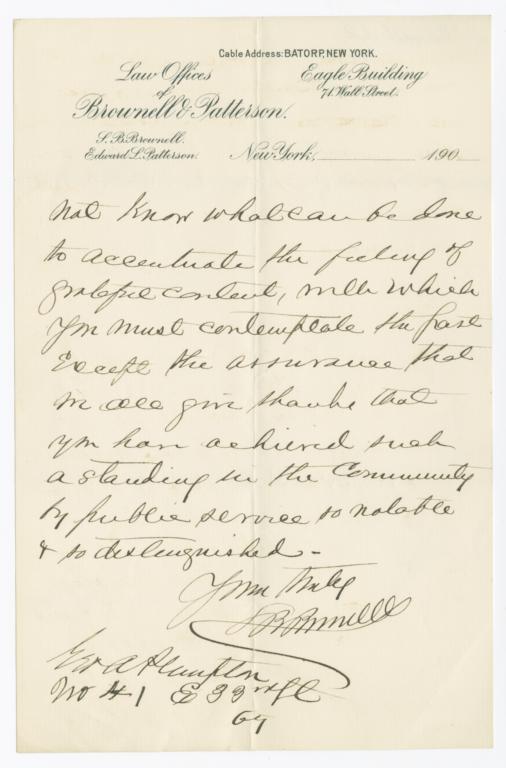 Cable Address: BATORP, NEW YORK.
Law Offices
of
Brownell & Patterson.
S. B. Brownell.
Edward L. Patterson.
Eagle Building
71. Wall Street.
New York, 190
not know what can be done
to accentuate the feeling of
grateful content, with which
you must contemplate the past
Except the assurance that
we all give thanks that
you have achieved such
a standing in the Community
by public service so notable
& so distinguished -
Yours truly
S B Brownell
Geo A Plimpton
No 41 E 33rd St